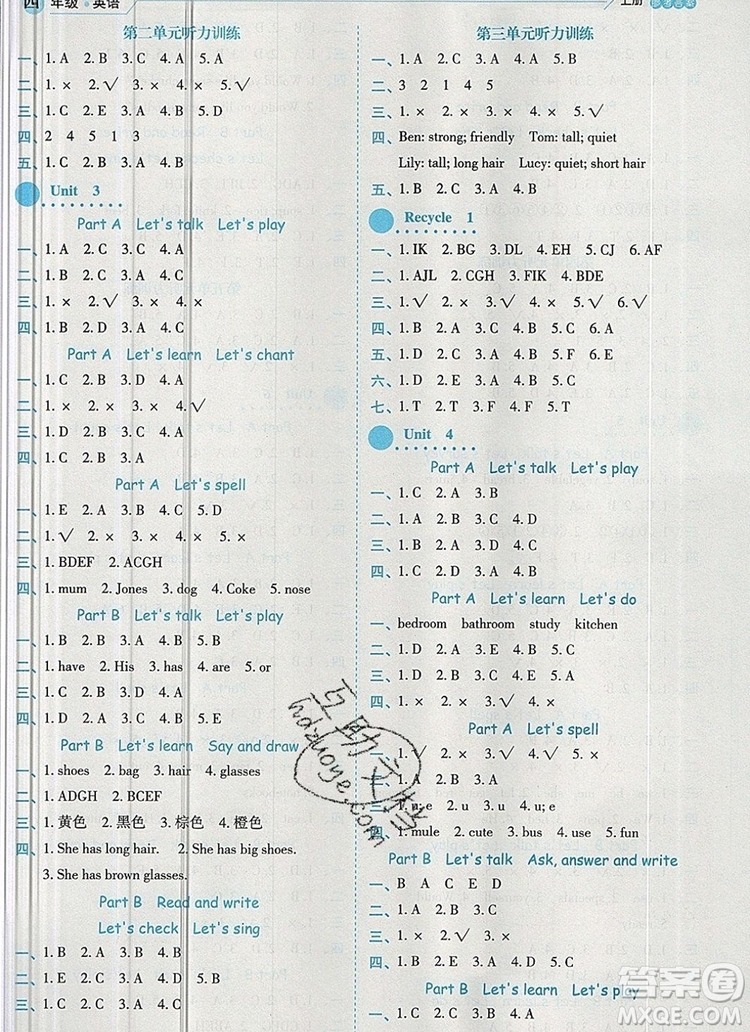 四 年级·英语
第二单元听力训练
一、1. A 2. B 3. C 4. A 5. A
二、1. × 2. √ 3. × 4. × 5. √
三、1. C 2. B 3. A 4. B 5. D
四、2 4 5 1 3
五、1. C 2. B 3. A 4. B
Unit 3
Part A Let's talk Let's play
一、1. A 2. C 3. C 4. A
二、1. B 2. C 3. C 4. A
三、1. × 2. √ 3. × 4. ×
四、1. B 2. D 3. A 4. C
Part A Let's learn Let's chant
一、1. C 2. B 3. D 4. A
二、1. × 2. × 3. × 4. √
三、1. D 2. D 3. A 4. B
四、1. C 2. B 3. A
Part A Let's spell
一、1. E 2. A 3. B 4. C 5. D
二、1. √ 2. × 3. × 4. × 5. ×
三、1. BDEF 2. ACGH
四、1. mum 2. Jones 3. dog 4. Coke 5. nose
Part B Let's talk Let's play
一、1. B 2. B 3. A 4. A 5. B
二、1. have 2. His 3. has 4. are 5. or
三、1. C 2. B 3. A 4. A
四、1. D 2. A 3. C 4. B 5. E
Part B Let's learn Say and draw
一、1. shoes 2. bag 3. hair 4. glasses
二、1. ADGH 2. BCEF
三、1. 黄色 2. 黑色 3. 棕色 4. 橙色
四、1. She has long hair. 2. She has big shoes.
3. She has brown glasses.
Part B Read and write
Let's check Let's sing
一、1. B 2. A 3. B 4. B 5. A
二、1. E 2. C 3. D 4. B 5. A
三、1. C 2. C 3. A 4. A
上册
第三单元听力训练
一、1. A 2. B 3. C 4. A 5. B
二、3 2 1 4 5
三、1. × 2. × 3. √ 4. × 5. √
四、Ben: strong; friendly Tom: tall; quiet
Lily: tall; long hair Lucy: quiet; short hair
五、1. B 2. A 3. C 4. A
Recycle 1
一、1. IK 2. BG 3. DL 4. EH 5. CJ 6. AF
二、1. AJL 2. CGH 3. FIK 4. BDE
三、1. √ 2. × 3. √ 4. √ 5. × 6. √
四、1. B 2. A 3. C 4. B 5. C 6. A
五、1. B 2. D 3. A 4. C 5. E
六、1. D 2. E 3. A 4. B 5. C
七、1. T 2. T 3. F 4. F 5. T
Unit 4
Part A Let's talk Let's play
一、1. C 2. A 3. B
二、1. C 2. A 3. C 4. D
三、1. D 2. B 3. A 4. C
四、1. C 2. A 3. D 4. B
Part A Let's learn Let's do
一、bedroom bathroom study kitchen
二、1. D 2. A 3. B 4. C
三、1. D 2. C 3. B 4. A
四、1. × 2. √ 3. √ 4. ×
Part A Let's spell
一、1. √ 2. × 3. √ 4. √ 5. ×
二、1. A 2. A 3. B 4. A
三、1. u; e 2. u 3. u 4. u; e
四、1. mule 2. cute 3. bus 4. use 5. fun
Part B Let's talk Ask, answer and write
一、B A C E D
二、1. C 2. B 3. A 4. A
三、1. × 2. √ 3. √ 4. ×
四、1. A 2. B 3. B 4. C
Part B Let's learn Let's play
互助文档
hdzuoye.com
答案圈
MXQE.COM